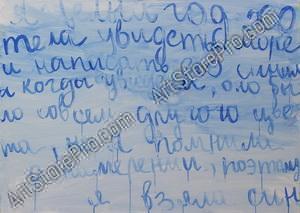 я целый год хо
тела увидеть море
и написать его синим
а когда увидела, оно бы
ло совсем другого цве
та, но я помнила
о намерении, поэтому
я взяла син
ArtStorePro.com
ArtStorePro.com
ArtStorePro.com
ArtStorePro.com